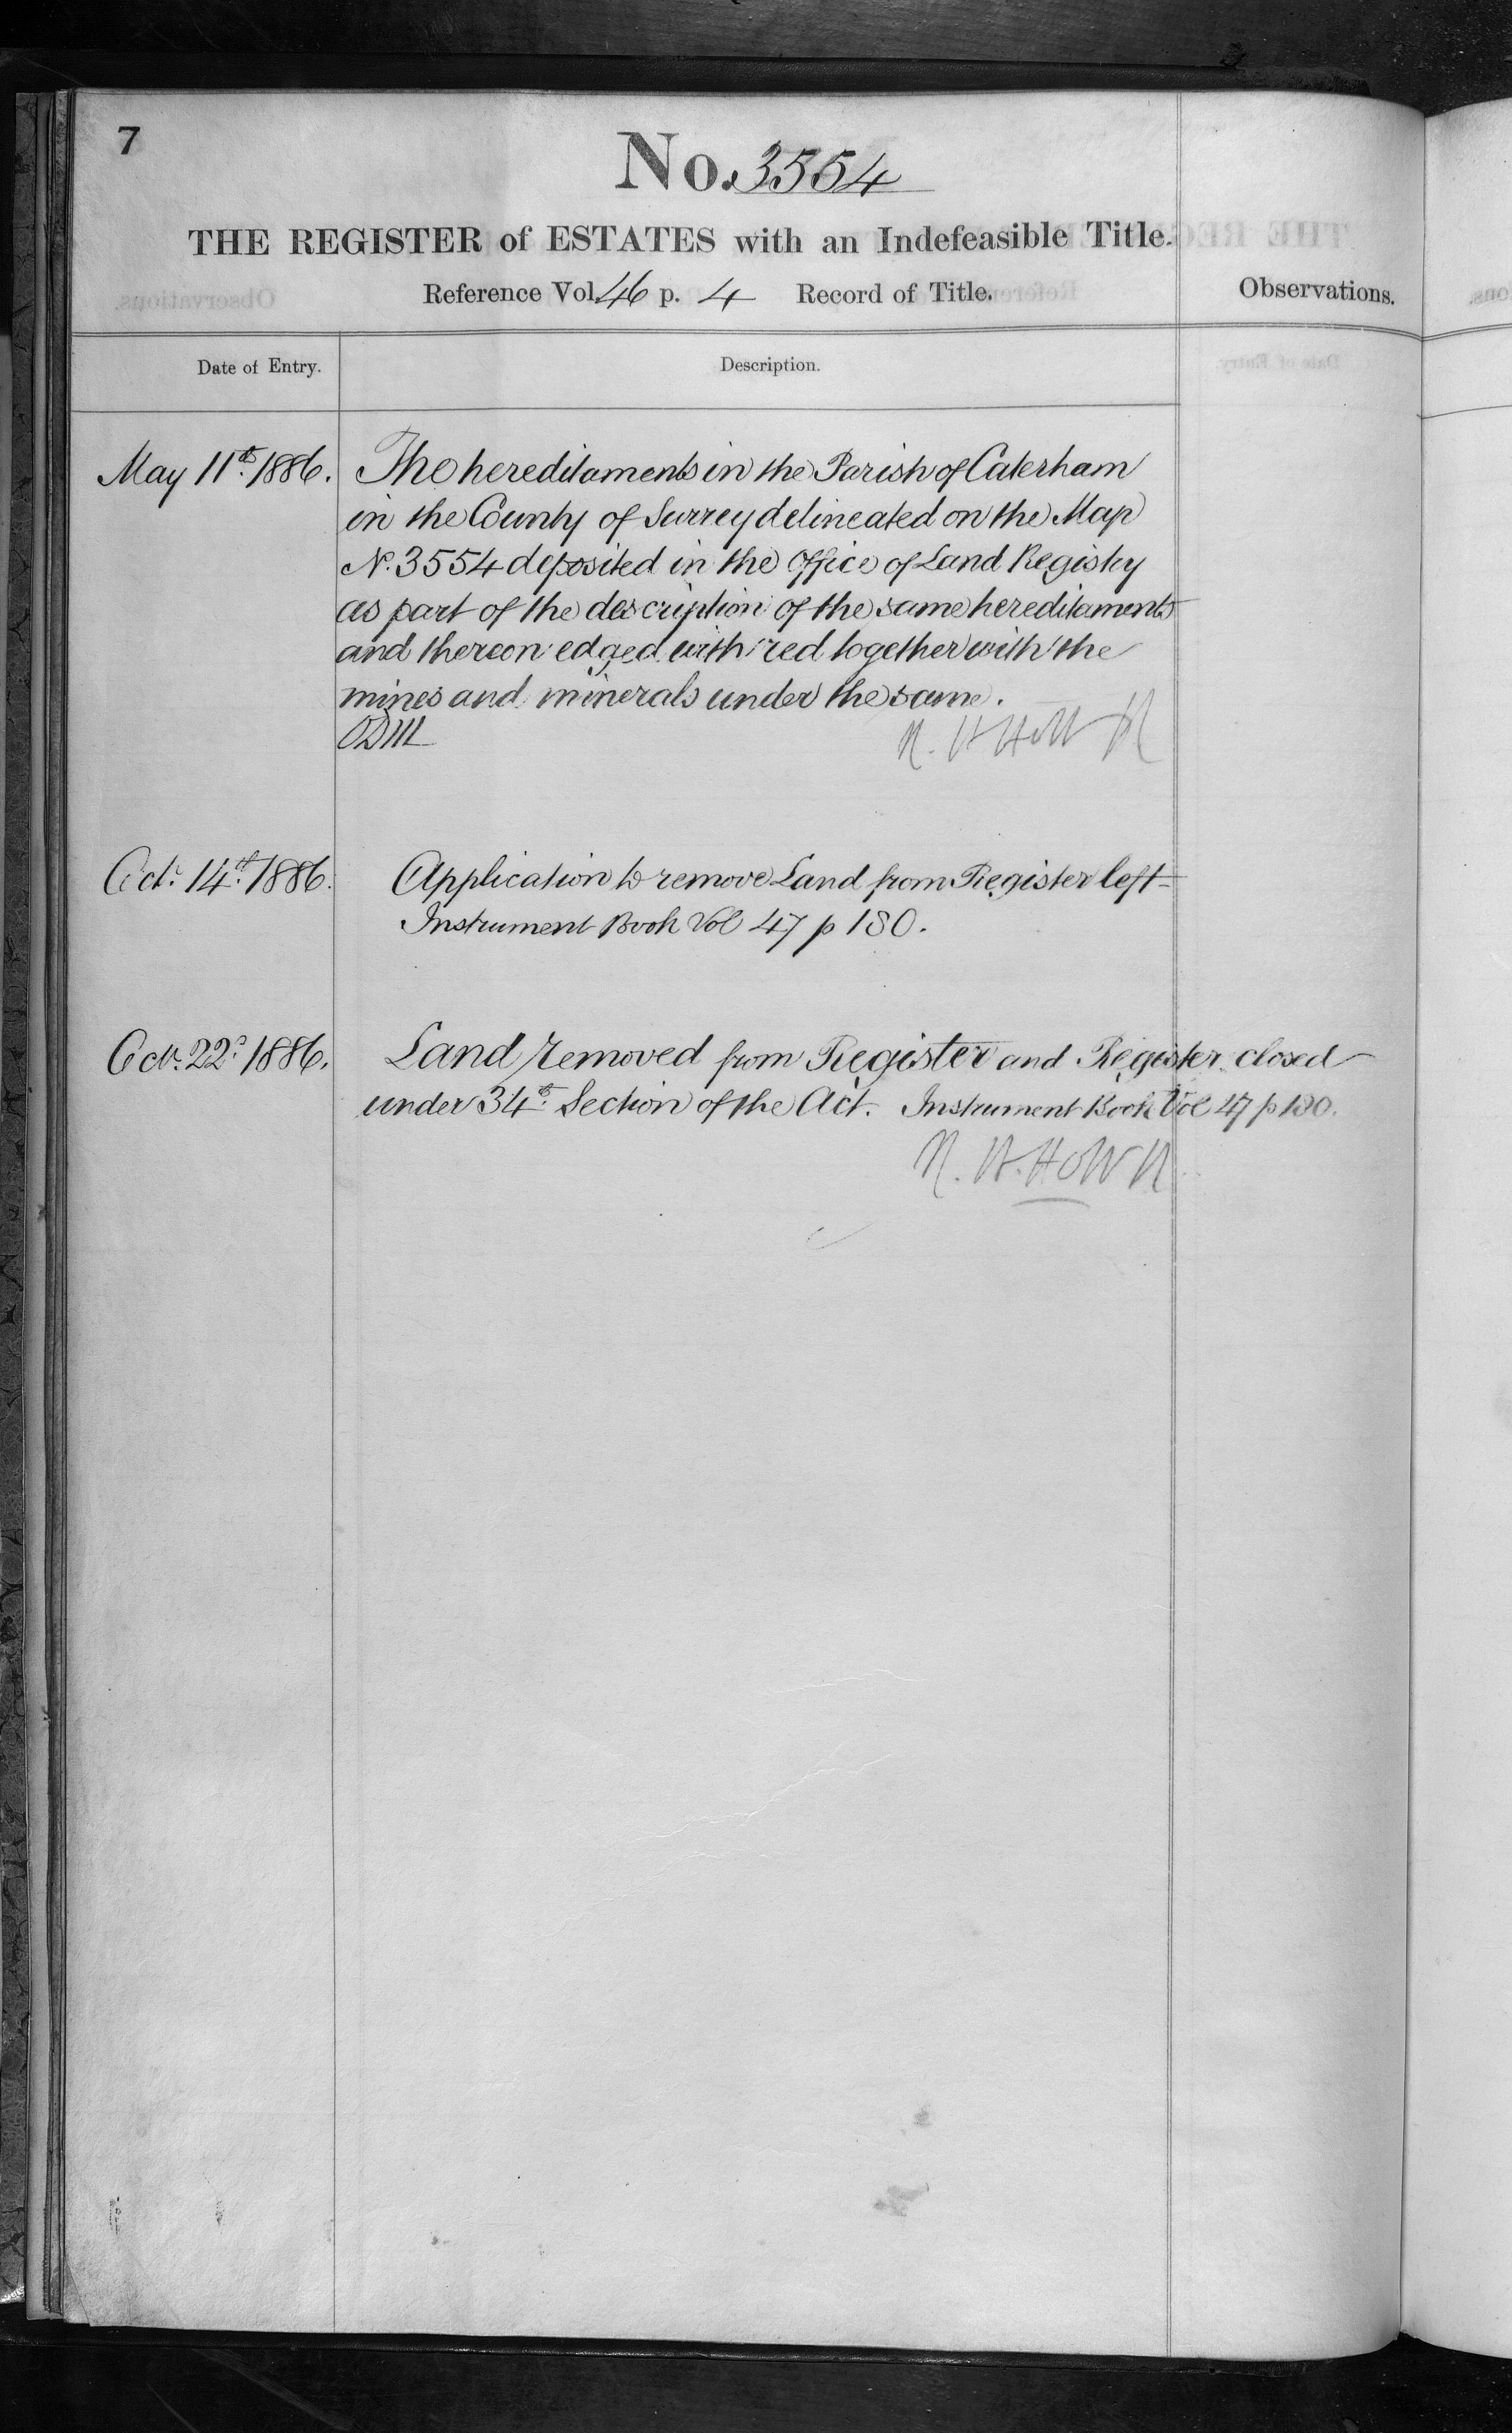 7
No. 3554
THE REGISTER of ESTATES with an Indefeasible Title.
Reference Vol. 46 p. 4 Record of Title.
Observations.
Date of Entry.
Description.
May 11th 1886.
The hereditaments in the Parish of Caterham
in the County of Surrey delineated on the Map
No. 3554 deposited in the Office of Land Registry
as part of the description of the same hereditaments
and thereon edged with red together with the
mines and minerals under the same.
Oct. 14th 1886.
Application to remove Land from Register left
Instrument Book Vol 47 p 180.
Oct. 22d 1886.
Land removed from Register and Register closed
under 34th Section of the Act. Instrument Book Vol 47 p 180.